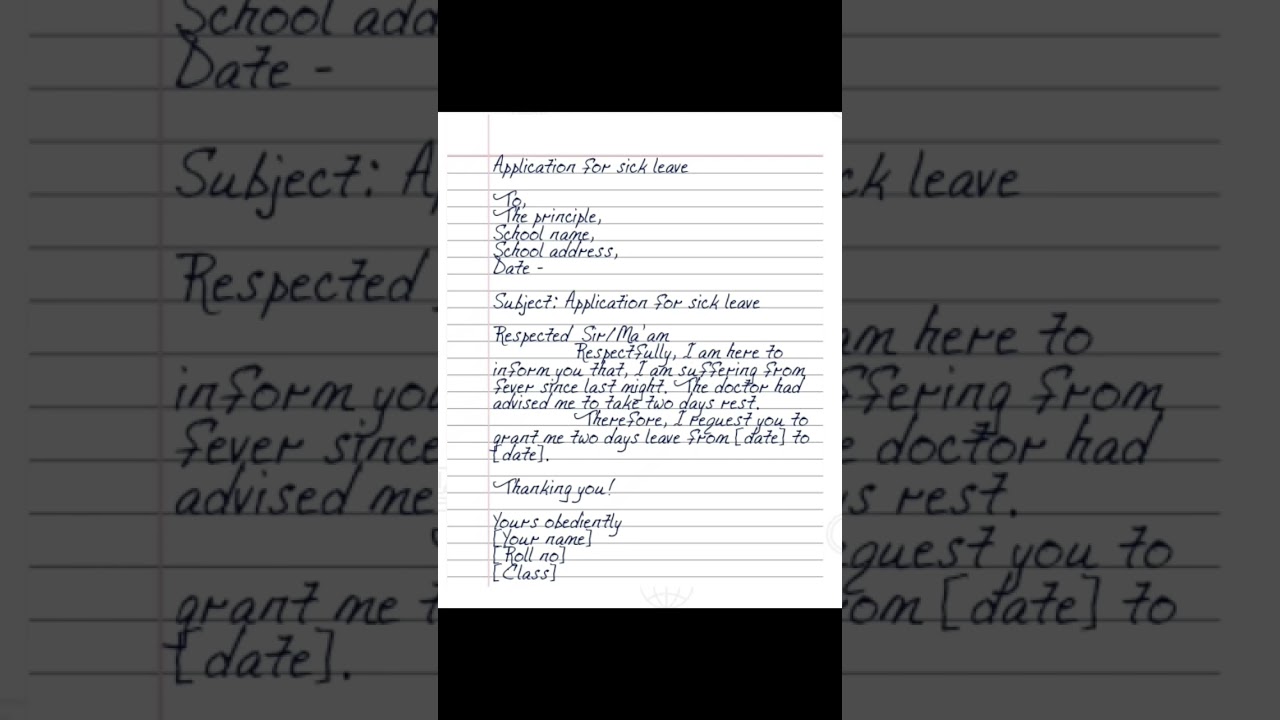 Application for sick leave
To,
The principle,
School name,
School address,
Date -
Subject: Application for sick leave
Respected Sir/Ma'am
Respectfully, I am here to
inform you that, I am suffering from
fever since last might. The doctor had
advised me to take two days rest.
Therefore, I request you to
grant me two days leave from [date] to
[date].
Thanking you!
Yours obediently
[Your name]
[Roll no]
[Class]